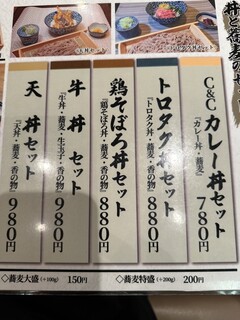 丼と蕎麦の
C&Cカレー丼セット
『カレー丼・蕎麦』
780円
トロタク丼セット
『トロタク丼・蕎麦・香の物』
880円
鶏そぼろ丼セット
『鶏そぼろ丼・蕎麦・香の物』
880円
牛丼セット
『牛丼・蕎麦・生玉子・香の物』
980円
天丼セット
『天丼・蕎麦・香の物』
980円
◇蕎麦大盛(+100g) 150円
◇蕎麦特盛(+200g) 200円